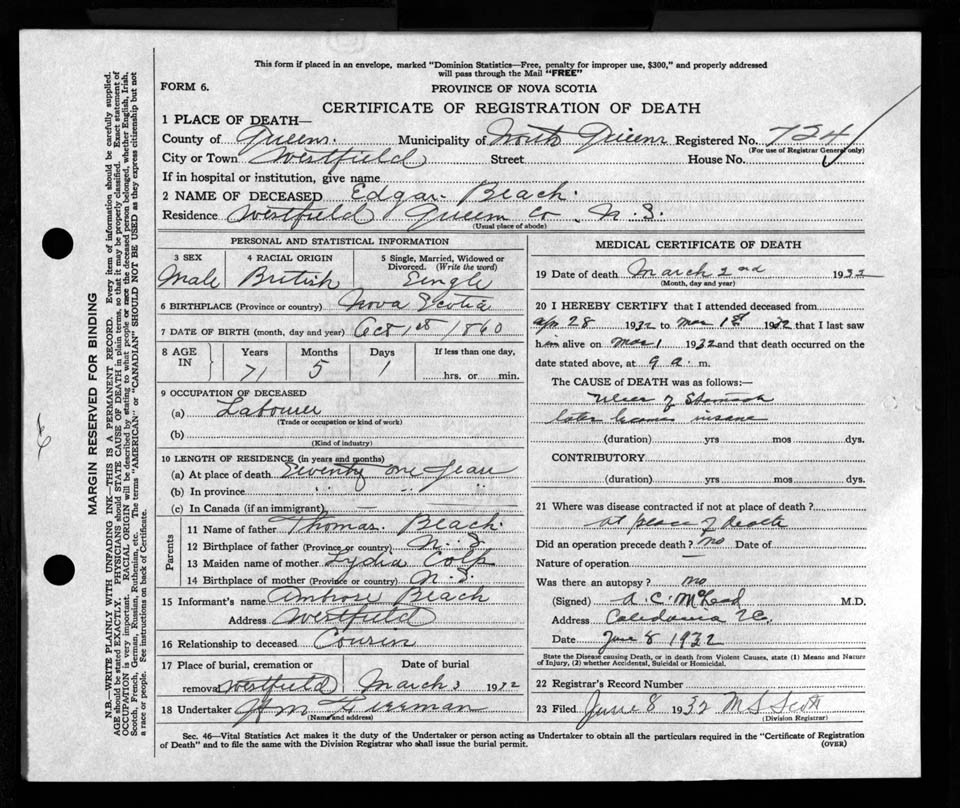 This form if placed in an envelope, marked "Dominion Statistics—Free, penalty for improper use, $300," and properly addressed
will pass through the Mail "FREE"
FORM 6.
PROVINCE OF NOVA SCOTIA
CERTIFICATE OF REGISTRATION OF DEATH
1 PLACE OF DEATH—
County of Queens. Municipality of North Queens Registered No. 724
(For use of Registrar General only)
City or Town Westfield Street House No.
If in hospital or institution, give name
2 NAME OF DECEASED Edgar Beach.
Residence Westfield Queens Co. N. S.
(Usual place of abode)
PERSONAL AND STATISTICAL INFORMATION
3 SEX
Male
4 RACIAL ORIGIN
British
5 Single, Married, Widowed or
Divorced. (Write the word)
Single
6 BIRTHPLACE (Province or country) Nova Scotia
7 DATE OF BIRTH (month, day and year) Oct 1st 1860
8 AGE IN
Years Months Days If less than one day,
71 5 1 hrs. or min.
9 OCCUPATION OF DECEASED
(a) Labourer
(Trade or occupation or kind of work)
(b)
(Kind of industry)
10 LENGTH OF RESIDENCE (in years and months)
(a) At place of death Seventy one years
(b) In province " " "
(c) In Canada (if an immigrant)
Parents
11 Name of father Thomas Beach.
12 Birthplace of father (Province or country) N. S.
13 Maiden name of mother Lydia Colp
14 Birthplace of mother (Province or country) N. S.
15 Informant's name Ambrose Beach
Address Westfield
16 Relationship to deceased Cousin
17 Place of burial, cremation or
removal Westfield
Date of burial
March 3 1932
18 Undertaker
(Name and address)
MEDICAL CERTIFICATE OF DEATH
19 Date of death March 2nd 1932
(Month, day and year)
20 I HEREBY CERTIFY that I attended deceased from
apr 28 1932 to Mar 1st 1932 that I last saw
him alive on Mar 1 1932 and that death occurred on the
date stated above, at 9 a. m.
The CAUSE of DEATH was as follows:—
Ulcer of Stomach
later became insane
(duration) yrs mos. dys.
CONTRIBUTORY
(duration) yrs. mos. dys.
21 Where was disease contracted if not at place of death?
at place of death
Did an operation precede death? No Date of
Nature of operation
Was there an autopsy? no
(Signed) A. C. McLeod M.D.
Address Caledonia
Date June 8 1932
State the Disease causing Death, or in death from Violent Causes, state (1) Means and Nature
of Injury, (2) whether Accidental, Suicidal or Homicidal.
22 Registrar's Record Number
23 Filed June 8 1932 M S Scott
(Division Registrar)
Sec. 46—Vital Statistics Act makes it the duty of the Undertaker or person acting as Undertaker to obtain all the particulars required in the "Certificate of Registration
of Death" and to file the same with the Division Registrar who shall issue the burial permit. (OVER)
MARGIN RESERVED FOR BINDING
N.B.—WRITE PLAINLY WITH UNFADING INK—THIS IS A PERMANENT RECORD. Every item of information should be carefully supplied.
AGE should be stated EXACTLY. PHYSICIANS should STATE CAUSE OF DEATH in plain terms, so that it may be properly classified. Exact statement of
OCCUPATION is very important. RACIAL ORIGIN will be described by stating to what people or race the deceased person belonged, whether English, Irish,
Scotch, French, German, Russian, Ruthenian, etc. The terms "AMERICAN" or "CANADIAN" SHOULD NOT BE USED as they express citizenship but not
a race or people. See instructions on back of Certificate.